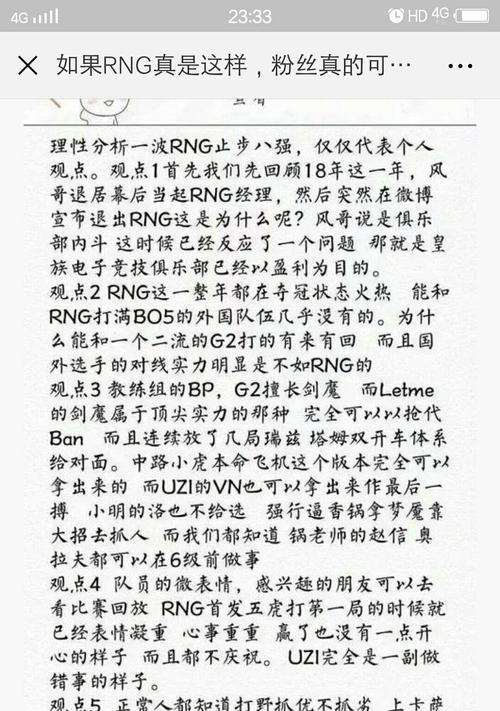 4G
23:33
HD 4G
如果RNG真是这样，粉丝真的可…
理性分析一波RNG止步八强，仅仅代表个人
观点。观点1首先我们先回顾18年这一年，风
哥退居幕后当起RNG经理，然后突然在微博
宣布退出RNG这是为什么呢？风哥说是俱乐
部内斗 这时候已经反应了一个问题 那就是皇
族电子竞技俱乐部已经以盈利为目的。
观点2 RNG这一整年都在夺冠状态火热 能和
RNG打满BO5的外国队伍几乎没有的。为什
么能和一个二流的G2打的有来有回 而且国
外选手的对线实力明显是不如RNG的
观点3 教练组的BP，G2擅长剑魔 而Letme
的剑魔属于顶尖实力的那种 完全可以以抢代
Ban 而且连续放了几局瑞兹 塔姆双开车体系
给对面。中路小虎本命飞机这个版本完全可以
拿出来的 而UZI的VN也可以拿出来作最后一
搏 小明的洛也不给选 强行逼香锅拿梦魇靠
大招去抓人 而我们都知道 锅老师的赵信 奥
拉夫都可以在6级前做事
观点4 队员的微表情，感兴趣的朋友可以去
看比赛回放 RNG首发五虎打第一局的时候就
已经表情凝重 心事重重 赢了也没有一点开
心的样子 而且都不庆祝。UZI完全是一副做
错事的样子。
观点5 正常人都知道打野抓优不抓劣 上卡萨